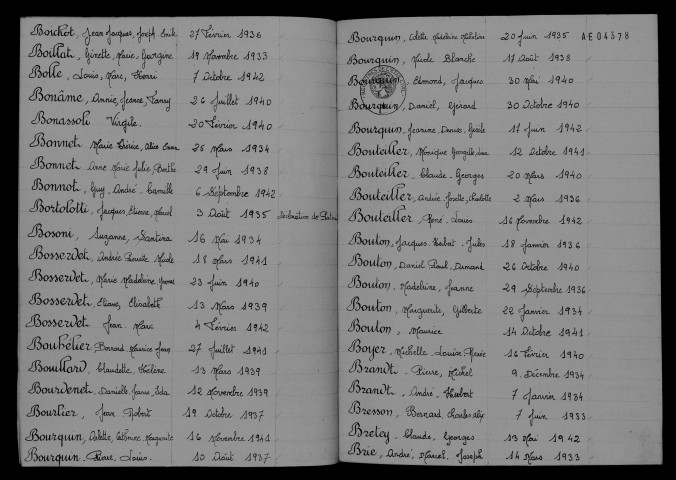 Boichot, Jean Jacques, Joseph Emile 27 Février 1936
Boillat, Ginette Marie, Georgine 19 Novembre 1933
Bolle, Louis, Marc, Henri 7 Octobre 1942
Bonâme, Annie, Jeanne, Fanny 26 Juillet 1940
Bonassoli Virgile 20 Février 1940
Bonnet Marie 25 Mars 1934
Bonnet Anne Marie Julie Berthe 29 Juin 1938
Bonnot, Guy, André, Camille 6 Septembre 1942
Bortolotti, Jacques, Etienne, Marcel 3 Août 1935 déclaration de
Bosoni, Suzanne, Santina 16 Mai 1934
Bosservet, Andrée Nicole 18 Mars 1941
Bosservet, Marie Madeleine Yvonne 23 Juin 1940
Bosservet Eliane, Elisabeth 13 Mars 1939
Bosservet Jean, Marc 4 Février 1942
Bouhelier Bernard Maurice Jean 27 Juillet 1941
Bouillard, Claudette, Hélène 13 Mars 1939
Bourdenet, Danielle, Jeanne, Ida 12 Novembre 1939
Bourlier, Jean Robert 19 Octobre 1937
Bourquin, Colette, Catherine, Marguerite 16 Novembre 1941
Bourquin, Pierre, Louis 10 Août 1937
Bourquin, Colette Madeleine Micheline 20 Juin 1935 AE04378
Bourquin, Nicole Blanche 17 Août 1938
Bourquin, Edmond, Jacques 30 Mai 1940
Bourquin, Daniel, Gérard 30 Octobre 1940
Bourquin, Jeanine, Denise, Gisèle 17 Juin 1942
Bouteiller, Monique 12 Octobre 1941
Bouteiller, Claude, Georges 20 Mars 1940
Bouteiller, Andrée, Josette, Charlotte 2 Mars 1936
Bouteiller, René, Louis 16 Novembre 1942
Bouton, Jacques, Herbert, Jules 18 Janvier 1936
Bouton, Daniel Paul, Armand 26 Octobre 1940
Bouton, Madeleine, Jeanne 29 Septembre 1936
Bouton, Marguerite, Gilberte 22 Janvier 1934
Bouton, Maurice 14 Octobre 1941
Boyer, Michelle Louise Renée 16 Février 1940
Brandt, Pierre, Michel 9 Décembre 1934
Brandt, André, Hubert 7 Janvier 1934
Bresson, Bernard, Charles 7 Juin 1933
Bretey, Claude, Georges 13 Mai 1942
Brie, André, Marcel, Joseph 14 Mars 1933